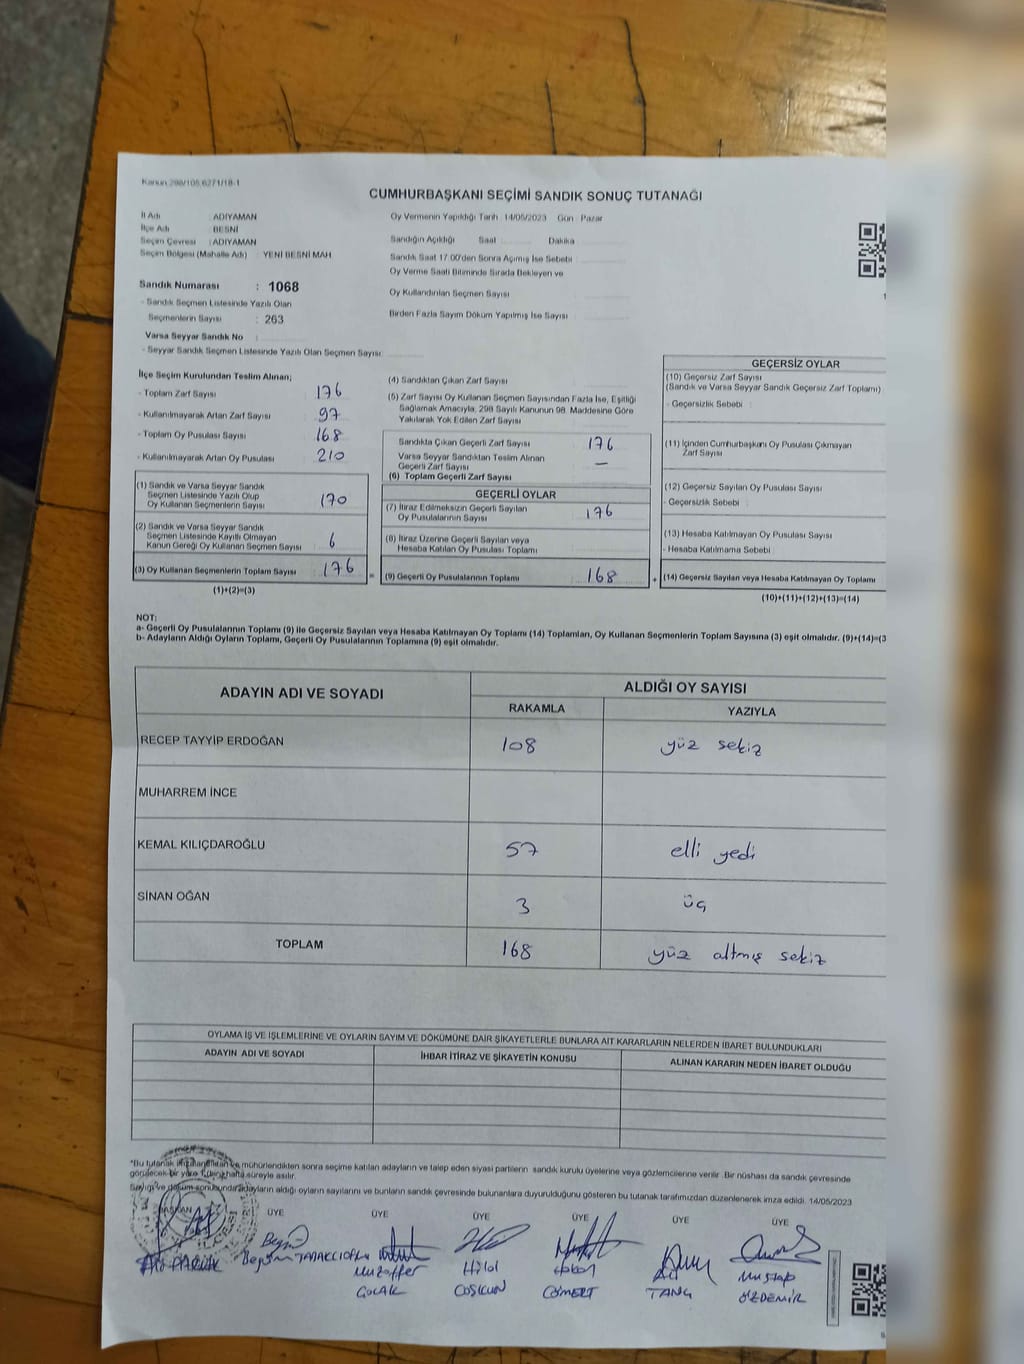 Kanun:298/105,6271/18-1
CUMHURBAŞKANI SEÇİMİ SANDIK SONUÇ TUTANAĞI
İl Adı : ADIYAMAN
İlçe Adı : BESNİ
Seçim Çevresi : ADIYAMAN
Seçim Bölgesi (Mahalle Adı) : YENİ BESNİ MAH.
Sandık Numarası : 1068
- Sandık Seçmen Listesinde Yazılı Olan
Seçmenlerin Sayısı : 263
Varsa Seyyar Sandık No :
- Seyyar Sandık Seçmen Listesinde Yazılı Olan Seçmen Sayısı
Oy Vermenin Yapıldığı Tarih : 14/05/2023 Gün : Pazar
Sandığın Açıldığı Saat Dakika
Sandık Saat 17.00'den Sonra Açımış İse Sebebi
Oy Verme Saati Bitiminde Sırada Bekleyen ve
Oy Kullandırılan Seçmen Sayısı
Birden Fazla Sayım Döküm Yapılmış İse Sayısı
İlçe Seçim Kurulundan Teslim Alınan;
- Toplam Zarf Sayısı 176
- Kullanılmayarak Artan Zarf Sayısı 97
- Toplam Oy Pusulası Sayısı 168
- Kullanılmayarak Artan Oy Pusulası 210
(1) Sandık ve Varsa Seyyar Sandık
Seçmen Listesinde Yazılı Olup
Oy Kullanan Seçmenlerin Sayısı 170
(2) Sandık ve Varsa Seyyar Sandık
Seçmen Listesinde Kayıtlı Olmayan
Kanun Gereği Oy Kullanan Seçmen Sayısı 6
(3) Oy Kullanan Seçmenlerin Toplam Sayısı 176 =
(1)+(2)=(3)
(4) Sandıktan Çıkan Zarf Sayısı
(5) Zarf Sayısı Oy Kullanan Seçmen Sayısından Fazla İse, Eşitliği
Sağlamak Amacıyla, 298 Sayılı Kanunun 98. Maddesine Göre
Yakılarak Yok Edilen Zarf Sayısı
Sandıkta Çıkan Geçerli Zarf Sayısı 176
Varsa Seyyar Sandıktan Teslim Alınan
Geçerli Zarf Sayısı —
(6) Toplam Geçerli Zarf Sayısı
GEÇERLİ OYLAR
(7) İtiraz Edilmeksizin Geçerli Sayılan
Oy Pusulalarının Sayısı 176
(8) İtiraz Üzerine Geçerli Sayılan veya
Hesaba Katılan Oy Pusulası Toplamı
(9) Geçerli Oy Pusulalarının Toplamı 168 +
GEÇERSİZ OYLAR
(10) Geçersiz Zarf Sayısı
(Sandık ve Varsa Seyyar Sandık Geçersiz Zarf Toplamı)
- Geçersizlik Sebebi :
(11) İçinden Cumhurbaşkanı Oy Pusulası Çıkmayan
Zarf Sayısı
(12) Geçersiz Sayılan Oy Pusulası Sayısı
- Geçersizlik Sebebi :
(13) Hesaba Katılmayan Oy Pusulası Sayısı
- Hesaba Katılmama Sebebi :
(14) Geçersiz Sayılan veya Hesaba Katılmayan Oy Toplamı
(10)+(11)+(12)+(13)=(14)
NOT:
a- Geçerli Oy Pusulalarının Toplamı (9) ile Geçersiz Sayılan veya Hesaba Katılmayan Oy Toplamı (14) Toplamları, Oy Kullanan Seçmenlerin Toplam Sayısına (3) eşit olmalıdır. (9)+(14)=(3
b- Adayların Aldığı Oyların Toplamı, Geçerli Oy Pusulalarının Toplamına (9) eşit olmalıdır.
ADAYIN ADI VE SOYADI ALDIĞI OY SAYISI
RAKAMLA YAZIYLA
RECEP TAYYİP ERDOĞAN 108 yüz sekiz
MUHARREM İNCE
KEMAL KILIÇDAROĞLU 57 elli yedi
SİNAN OĞAN 3 üç
TOPLAM 168 yüz altmış sekiz
OYLAMA İŞ VE İŞLEMLERİNE VE OYLARIN SAYIM VE DÖKÜMÜNE DAİR ŞİKAYETLERLE BUNLARA AİT KARARLARIN NELERDEN İBARET BULUNDUKLARI
ADAYIN ADI VE SOYADI İHBAR İTİRAZ VE ŞİKAYETİN KONUSU ALINAN KARARIN NEDEN İBARET OLDUĞU
*Bu tutanak mühürlendikten sonra seçime katılan adayların ve talep eden siyasi partilerin sandık kurulu üyelerine veya gözlemcilerine verilir. Bir nüshası da sandık çevresinde
görülecek bir yere 1 (bir) hafta süreyle asılır.
adayların aldığı oyların sayılarını ve bunların sandık çevresinde bulunanlara duyurulduğunu gösteren bu tutanak tarafımızdan düzenlenerek imza edildi. 14/05/2023
BAŞKAN ÜYE ÜYE ÜYE ÜYE ÜYE ÜYE
Muzaffer Hilal Hakan Ali Mustafa
COŞKUN CÖMERT TANÇ ÖZDEMİR